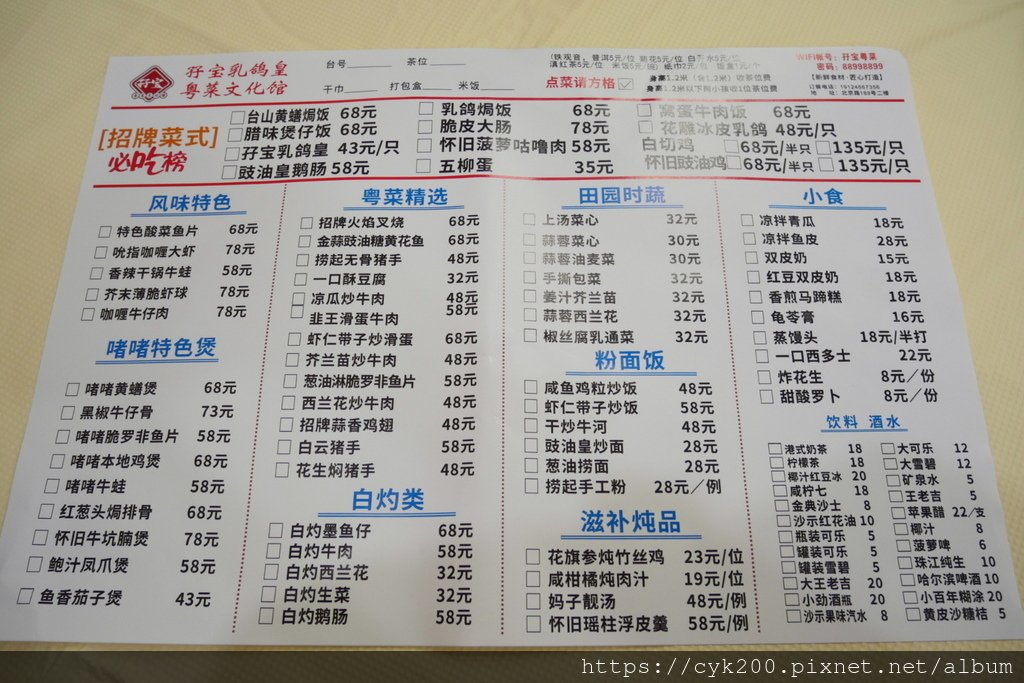 孖宝
孖宝乳鸽皇
粤菜文化馆
台号 茶位
干巾 打包盒 米饭
(铁观音，普洱5元/位 菊花5元/位 白开水5元/位
滇红茶5元/位 米饭5元/碗) 纸巾2元/包
点菜请方格
身高1.2米（含1.2米）收茶位费
身高1.2米以下两小孩收1位茶位费
WIFI帐号：孖宝粤菜
密码：88998899
【新鲜食材·匠心打造】
订餐电话：19124667356
地 址：北京路168号二楼
[招牌菜式]
必吃榜
台山黄鳝焗饭 68元
腊味煲仔饭 68元
孖宝乳鸽皇 43元/只
豉油皇鹅肠 58元
乳鸽焗饭 68元
脆皮大肠 78元
怀旧菠萝咕噜肉 58元
五柳蛋 35元
窝蛋牛肉饭 68元
花雕冰皮乳鸽 48元/只
白切鸡 68元/半只 135元/只
怀旧豉油鸡 68元/半只 135元/只
风味特色
特色酸菜鱼片 68元
吮指咖喱大虾 78元
香辣干锅牛蛙 58元
芥末薄脆虾球 78元
咖喱牛仔肉 78元
啫啫特色煲
啫啫黄鳝煲 68元
黑椒牛仔骨 73元
啫啫脆罗非鱼片 58元
啫啫本地鸡煲 68元
啫啫牛蛙 58元
红葱头焗排骨 68元
怀旧牛坑腩煲 78元
鲍汁凤爪煲 58元
鱼香茄子煲 43元
粤菜精选
招牌火焰叉烧 68元
金蒜豉油糖黄花鱼 68元
捞起无骨猪手 48元
一口酥豆腐 32元
凉瓜炒牛肉 48元
韭王滑蛋牛肉 58元
虾仁带子炒滑蛋 68元
芥兰苗炒牛肉 48元
葱油淋脆罗非鱼片 58元
西兰花炒牛肉 48元
招牌蒜香鸡翅 48元
白云猪手 58元
花生焖猪手 48元
白灼类
白灼墨鱼仔 68元
白灼牛肉 58元
白灼西兰花 32元
白灼生菜 32元
白灼鹅肠 58元
田园时蔬
上汤菜心 32元
蒜蓉菜心 30元
蒜蓉油麦菜 30元
手撕包菜 32元
姜汁芥兰苗 32元
蒜蓉西兰花 32元
椒丝腐乳通菜 32元
粉面饭
咸鱼鸡粒炒饭 48元
虾仁带子炒饭 58元
干炒牛河 48元
豉油皇炒面 28元
葱油捞面 28元
捞起手工粉 28元／例
滋补炖品
花旗参炖竹丝鸡 23元/位
咸柑橘炖肉汁 19元/位
妈子靓汤 48元/例
怀旧瑶柱浮皮羹 58元/例
小食
凉拌青瓜 18元
凉拌鱼皮 28元
双皮奶 15元
红豆双皮奶 18元
香煎马蹄糕 18元
龟苓膏 16元
蒸馒头 18元/半打
一口西多士 22元
炸花生 8元／份
甜酸萝卜 8元／份
饮料 酒水
港式奶茶 18
柠檬茶 18
椰汁红豆冰 20
咸柠七 18
金典沙士 8
沙示红花油 10
瓶装可乐 5
罐装可乐 5
罐装雪碧 5
大王老吉 20
小劲酒瓶 20
沙示果味汽水 8
大可乐 12
大雪碧 12
矿泉水 5
王老吉 5
苹果醋 22/支
椰汁 8
菠萝啤 6
珠江纯生 10
哈尔滨啤酒 10
小百年糊涂 20
黄皮沙糖桔 5
https://cyk200.pixnet.net/album